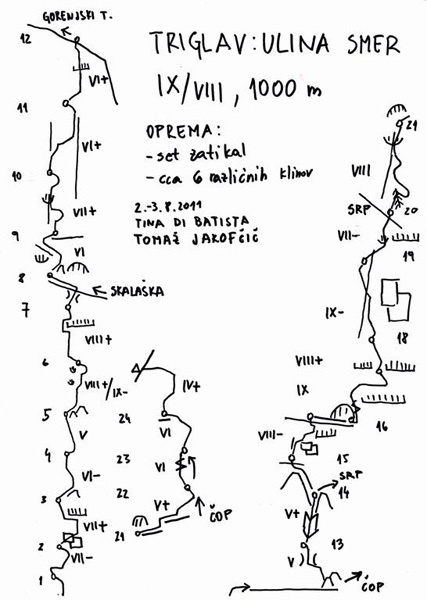 GORENJSKI T.
12
VI+
11
VI+
10
VII+
9
VI
8
SKALAŠKA
7
VIII+
6
VIII+/IX-
5
V
4
VI-
3
VII+
2
VII-
1
TRIGLAV: ULINA SMER
IX/VIII, 1000 m
OPREMA:
- set zatikal
- cca 6 različnih klinov
2.-3.8.2011
TINA DI BATISTA
TOMAŽ JAKOFČIČ
IV+
24
VI
23
VI
22
V+
ČOP
21
21
VIII
SRP
20
VII-
19
IX-
18
VIII+
IX
16
VIII-
15
SRP
14
V+
13
V
ČOP